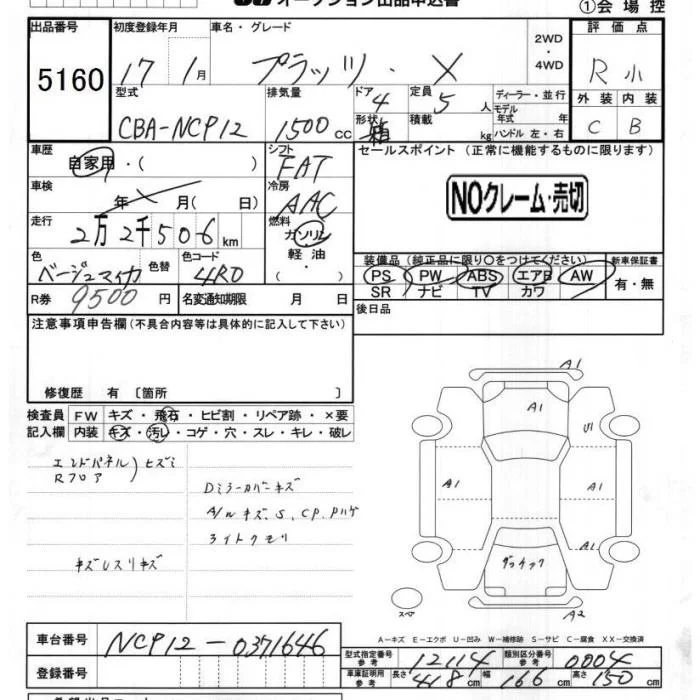 オークション出品申込書
①会場控
出品番号 初度登録年月 車名・グレード 評価点
5160 17 1月 プラッツ・X 2WD・4WD R 小
型式 排気量 ドア 4 定員 5人 ディーラー・並行 外装 内装
CBA-NCP12 1500cc 形状 箱 積載 kg モデル年式 年 ハンドル 左・右 C B
車歴 シフト セールスポイント (正常に機能するものに限ります)
自家用・( ) FAT
車検 冷房 NOクレーム・売切
年 月( 日) AAC
走行 燃料
2万2千506km ガソリン
色 色替 色コード 軽油 装備品 (純正品に限り○をつけてください) 新車保証書
ベージュマイカ 4R0 ・( ) PS PW ABS エアB AW 有・無
R券 9500円 名変通知期限 月 日 SR ナビ TV カワ
注意事項申告欄 (不具合内容等は具体的に記入して下さい) 後日品
修復歴 有 〔箇所 〕
検査員 FW キズ・飛石・ヒビ割・リペア跡・×要
記入欄 内装 キズ・汚レ・コゲ・穴・スレ・キレ・破レ
エンドパネル)ヒズミ
Rフロア
Dミラーカバーキズ
A/Wキズ、S、CP、Pハゲ
ライトクモリ
A1
A1
U1
A1 A1 A1
A1
A2
スペア
A-キズ E-エクボ U-凹み W-補修跡 S-サビ C-腐食 XX-交換済
車台番号 NCP12-0371646
登録番号
型式指定番号 参考 12114 類別区分番号 参考 0004
車庫証明用 参考 長さ 418cm 幅 166cm 高さ 150cm